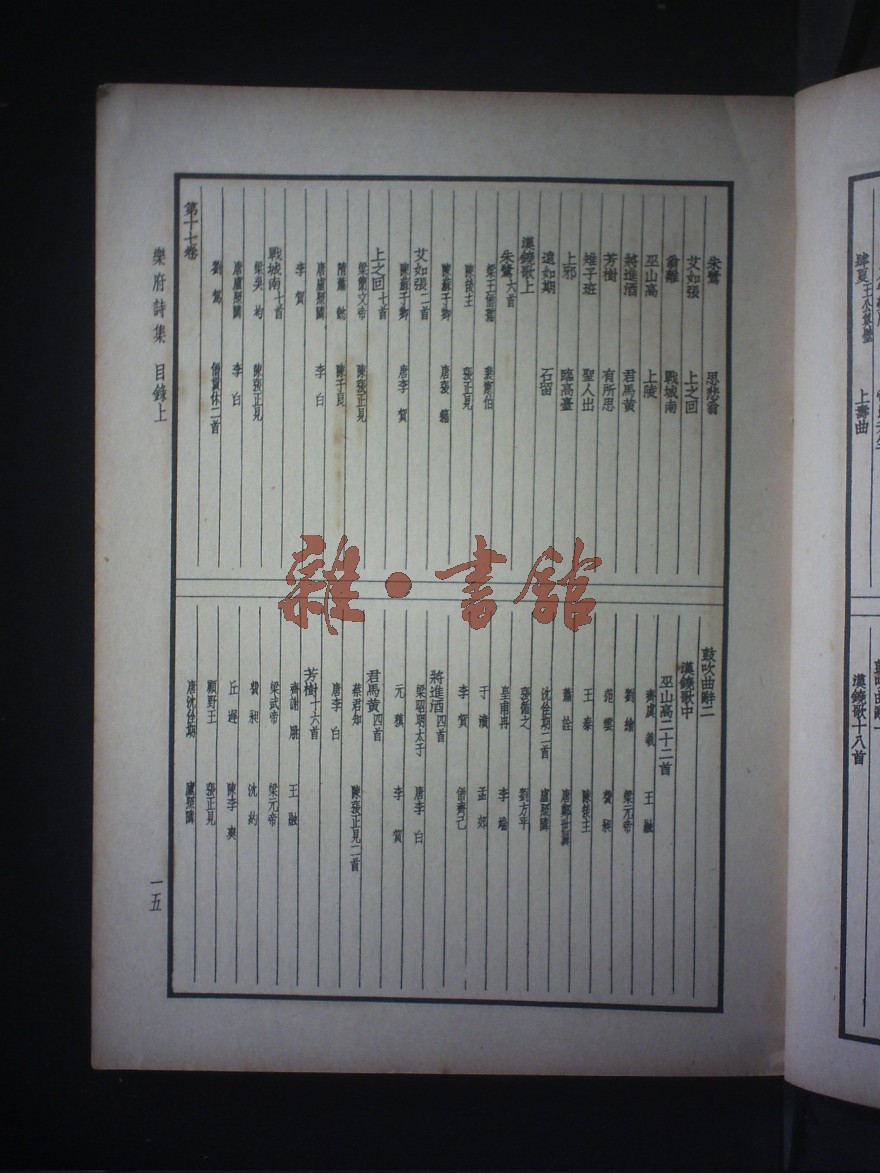 肆夏 王公奠璧 上壽曲
漢鐃歌十八首
朱鷺 思悲翁
艾如張 上之回
翁離 戰城南
巫山高 上陵
將進酒 君馬黃
芳樹 有所思
雉子班 聖人出
上邪 臨高臺
遠如期 石留
漢鐃歌上
朱鷺六首
梁王僧孺 裴憲伯
陳後主 張正見
陳蘇子卿 唐張籍
艾如張二首
陳蘇子卿 唐李賀
上之回七首
梁簡文帝 陳張正見
隋蕭愨 陳子良
唐盧照隣 李白
李賀
戰城南七首
梁吳均 陳張正見
唐盧照隣 李白
劉駕 僧貫休二首
第十七卷
鼓吹曲辭二
漢鐃歌中
巫山高二十二首
齊虞羲 王融
劉繪 梁元帝
范雲 費昶
王泰 陳後主
蕭詮 唐鄭世翼
沈佺期二首 盧照隣
張循之 劉方平
皇甫冉 李端
于濆 孟郊
李賀 僧齊己
將進酒四首
梁昭明太子 唐李白
元稹 李賀
君馬黃四首
蔡君知 陳張正見二首
唐李白
芳樹十六首
齊謝朓 王融
梁武帝 梁元帝
費昶 沈約
丘遲 陳李爽
顧野王 張正見
唐沈佺期 盧照隣
樂府詩集 目錄上
一五
雜·書館